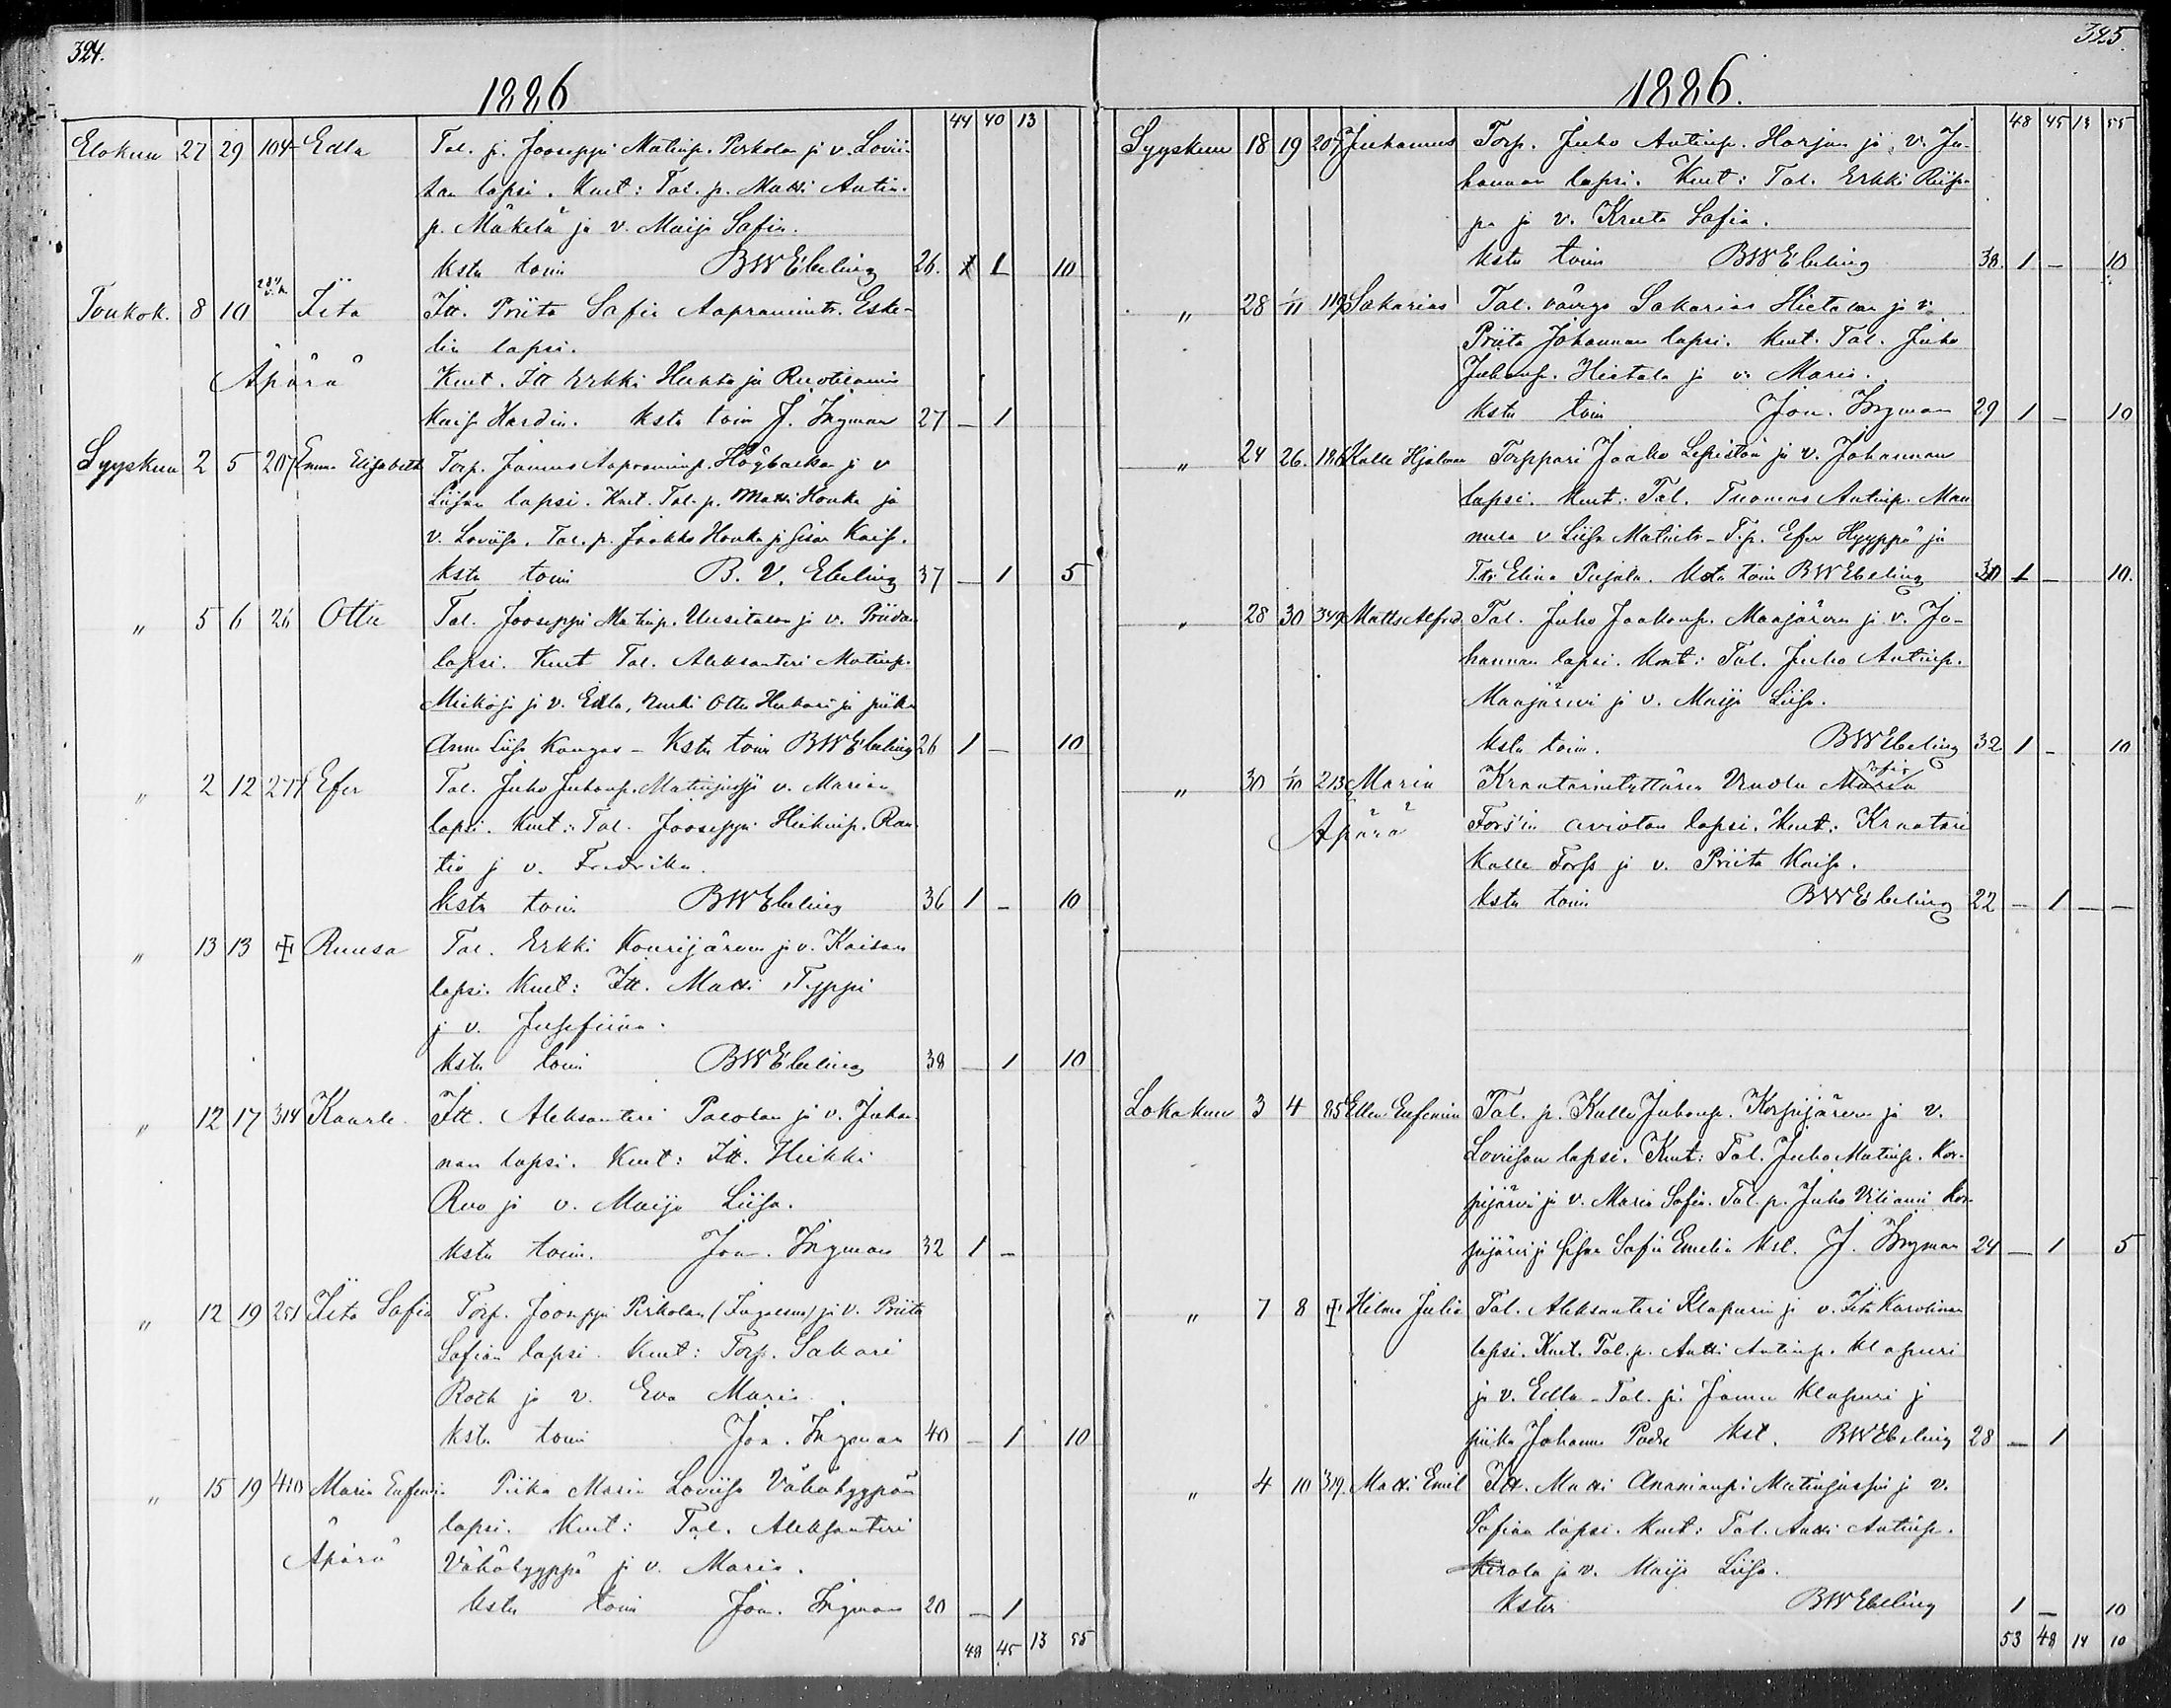 324.
1886
44 40 13
Elokuu 27 29 104 Edla Tal. p. Jooseppi Matinp. Perkola ja v. Lovii-
san lapsi. Kmt: Tal. p. Matti Antin-
p. Mäkelä ja v. Maija Sofia.
kstn toim BW Ebeling 26. 1 10
Toukok. 8 10 Iita Itt. Priita Sofia Aapramintr. Eske-
lin lapsi.
Äpärä Kmt. Itt Erkki Huhta ja
Kaisa Hardin. kstn toim J. Ingman 27 — 1
Syyskuu 2 5 207 Emma Elisabeth Torp. Jannes Aapraminp. Högbacka ja v
Liisan lapsi. Kmt. Tal. p. Matti Honka ja
v. Loviisa. Tal. p. Jaakko Honka ja sisar Kaisa.
kstn toim B. V. Ebeling 37 — 1 5
" 5 6 26 Otto Tal. Jooseppi Matinp. Uusitalon ja v. Priidan
lapsi. Kmt Tal. Aleksanteri Matinp.
ja v. Edla, renki Otto ja piika
Anna Liisa Kangas – Kstn toim BW Ebeling 26 1 — 10
" 2 12 277 Efer Tal. Juho Juhonp. Matinjussi ja v. Marian
lapsi. Kmt: Tal. Jooseppi Heikinp. Ran-
tio ja v. Fredrika.
kstn toim BW Ebeling 36 1 — 10
" 13 13 Ruusa Tal. Erkki Kourijärven ja v. Kaisan
lapsi. Kmt: Itt. Matti Typpi
ja v. Josefiina.
kstn toim BW Ebeling 38 — 1 10
" 12 17 314 Kaarle Itt. Aleksanteri Palolan ja v. Juhan-
nan lapsi. Kmt: Itt. Heikki
Ruo ja v. Maija Liisa.
kstn toim. Jon. Ingman 32 1 —
" 12 19 251 Iita Sofia Torp. Jooseppi Perkolan ja v. Priita
Sofian lapsi. Kmt: Torp. Sakari
Roth ja v. Eva Maria.
kstn toim Jon. Ingman 40 — 1 10
" 15 19 410 Maria Eufemia Piika Maria Loviisa Vähähyypän
lapsi. Kmt: Tal. Aleksanteri
Äpärä Vähähyyppä ja v. Maria.
kstn toim Jon. Ingman 20 — 1
48 45 13 55
325.
1886.
48 45 13 55
Syyskuu 18 19 207 Juhannes Torp. Juho Antinp. Harjun ja v. Jo-
hannan lapsi. Kmt: Tal. Erkki Riip-
pa ja v. Kreeta Sofia.
kstn toim BW Ebeling 38. 1 — 10
" 28 1/11 119 Sakarias Tal. vävyn Sakarias Hietalan ja v.
Priita Johannan lapsi. Kmt. Tal. Juho
Juhonp. Hietala ja v. Maria.
kstn toim Jon. Ingman 29 1 — 10
" 24 26. 186 Kalle Hjalmar Torppari Jaako Lepistön ja v. Johannan
lapsi. Kmt: Tal. Tuomas Antinp. Man-
nila v Liisa Matintr – T. p. Efer Hyyppä ja
T. tr. Elina Pujala. Kstn toim BW Ebeling 30 1 — 10.
" 28 30 349 Matts Alfred Tal. Juho Jaakonp. Maajärven ja v. Jo-
hannan lapsi. Kmt: Tal. Juho Antinp.
Maajärvi ja v. Maija Liisa.
kstn toim. BW Ebeling 32 1 — 10
" 30 1/10 213 Maria Kraatarintyttären Sofia Maria
Äpärä Fors'in aviotan lapsi. Kmt: Kraatari
Kalle Forss ja v. Priita Kaisa.
kstn toim BW Ebeling 22 — 1 — —
Lokakuu 3 4 85 Ellen Eufemia Tal. p. Kalle Juhonp. Korpijärven ja v.
Loviisan lapsi. Kmt: Tal. Juho Matinp. Kor-
pijärvi ja v. Maria Sofia. Tal. p. Juho Viliami Kor-
pijärvi ja sisar Sofia Emelia kst. J. Ingman 24 — 1 5
" 7 8 Hilma Julia Tal. Aleksanteri Klapurin ja v. Iita Karolinan
lapsi. Kmt. Tal. p. Antti Antinp. Klapuri
ja v. Edla – Tal. p. Janne Klapuri ja
piika Johanna kst. BW Ebeling 28 — 1
" 4 10 319. Matti Emil Itt. Matti Ananianp. Matinjussin ja v.
Sofian lapsi. Kmt: Tal. Antti Antinp.
Kerola ja v. Maija Liisa.
kstn BW Ebeling 1 — 10
53 48 14 10